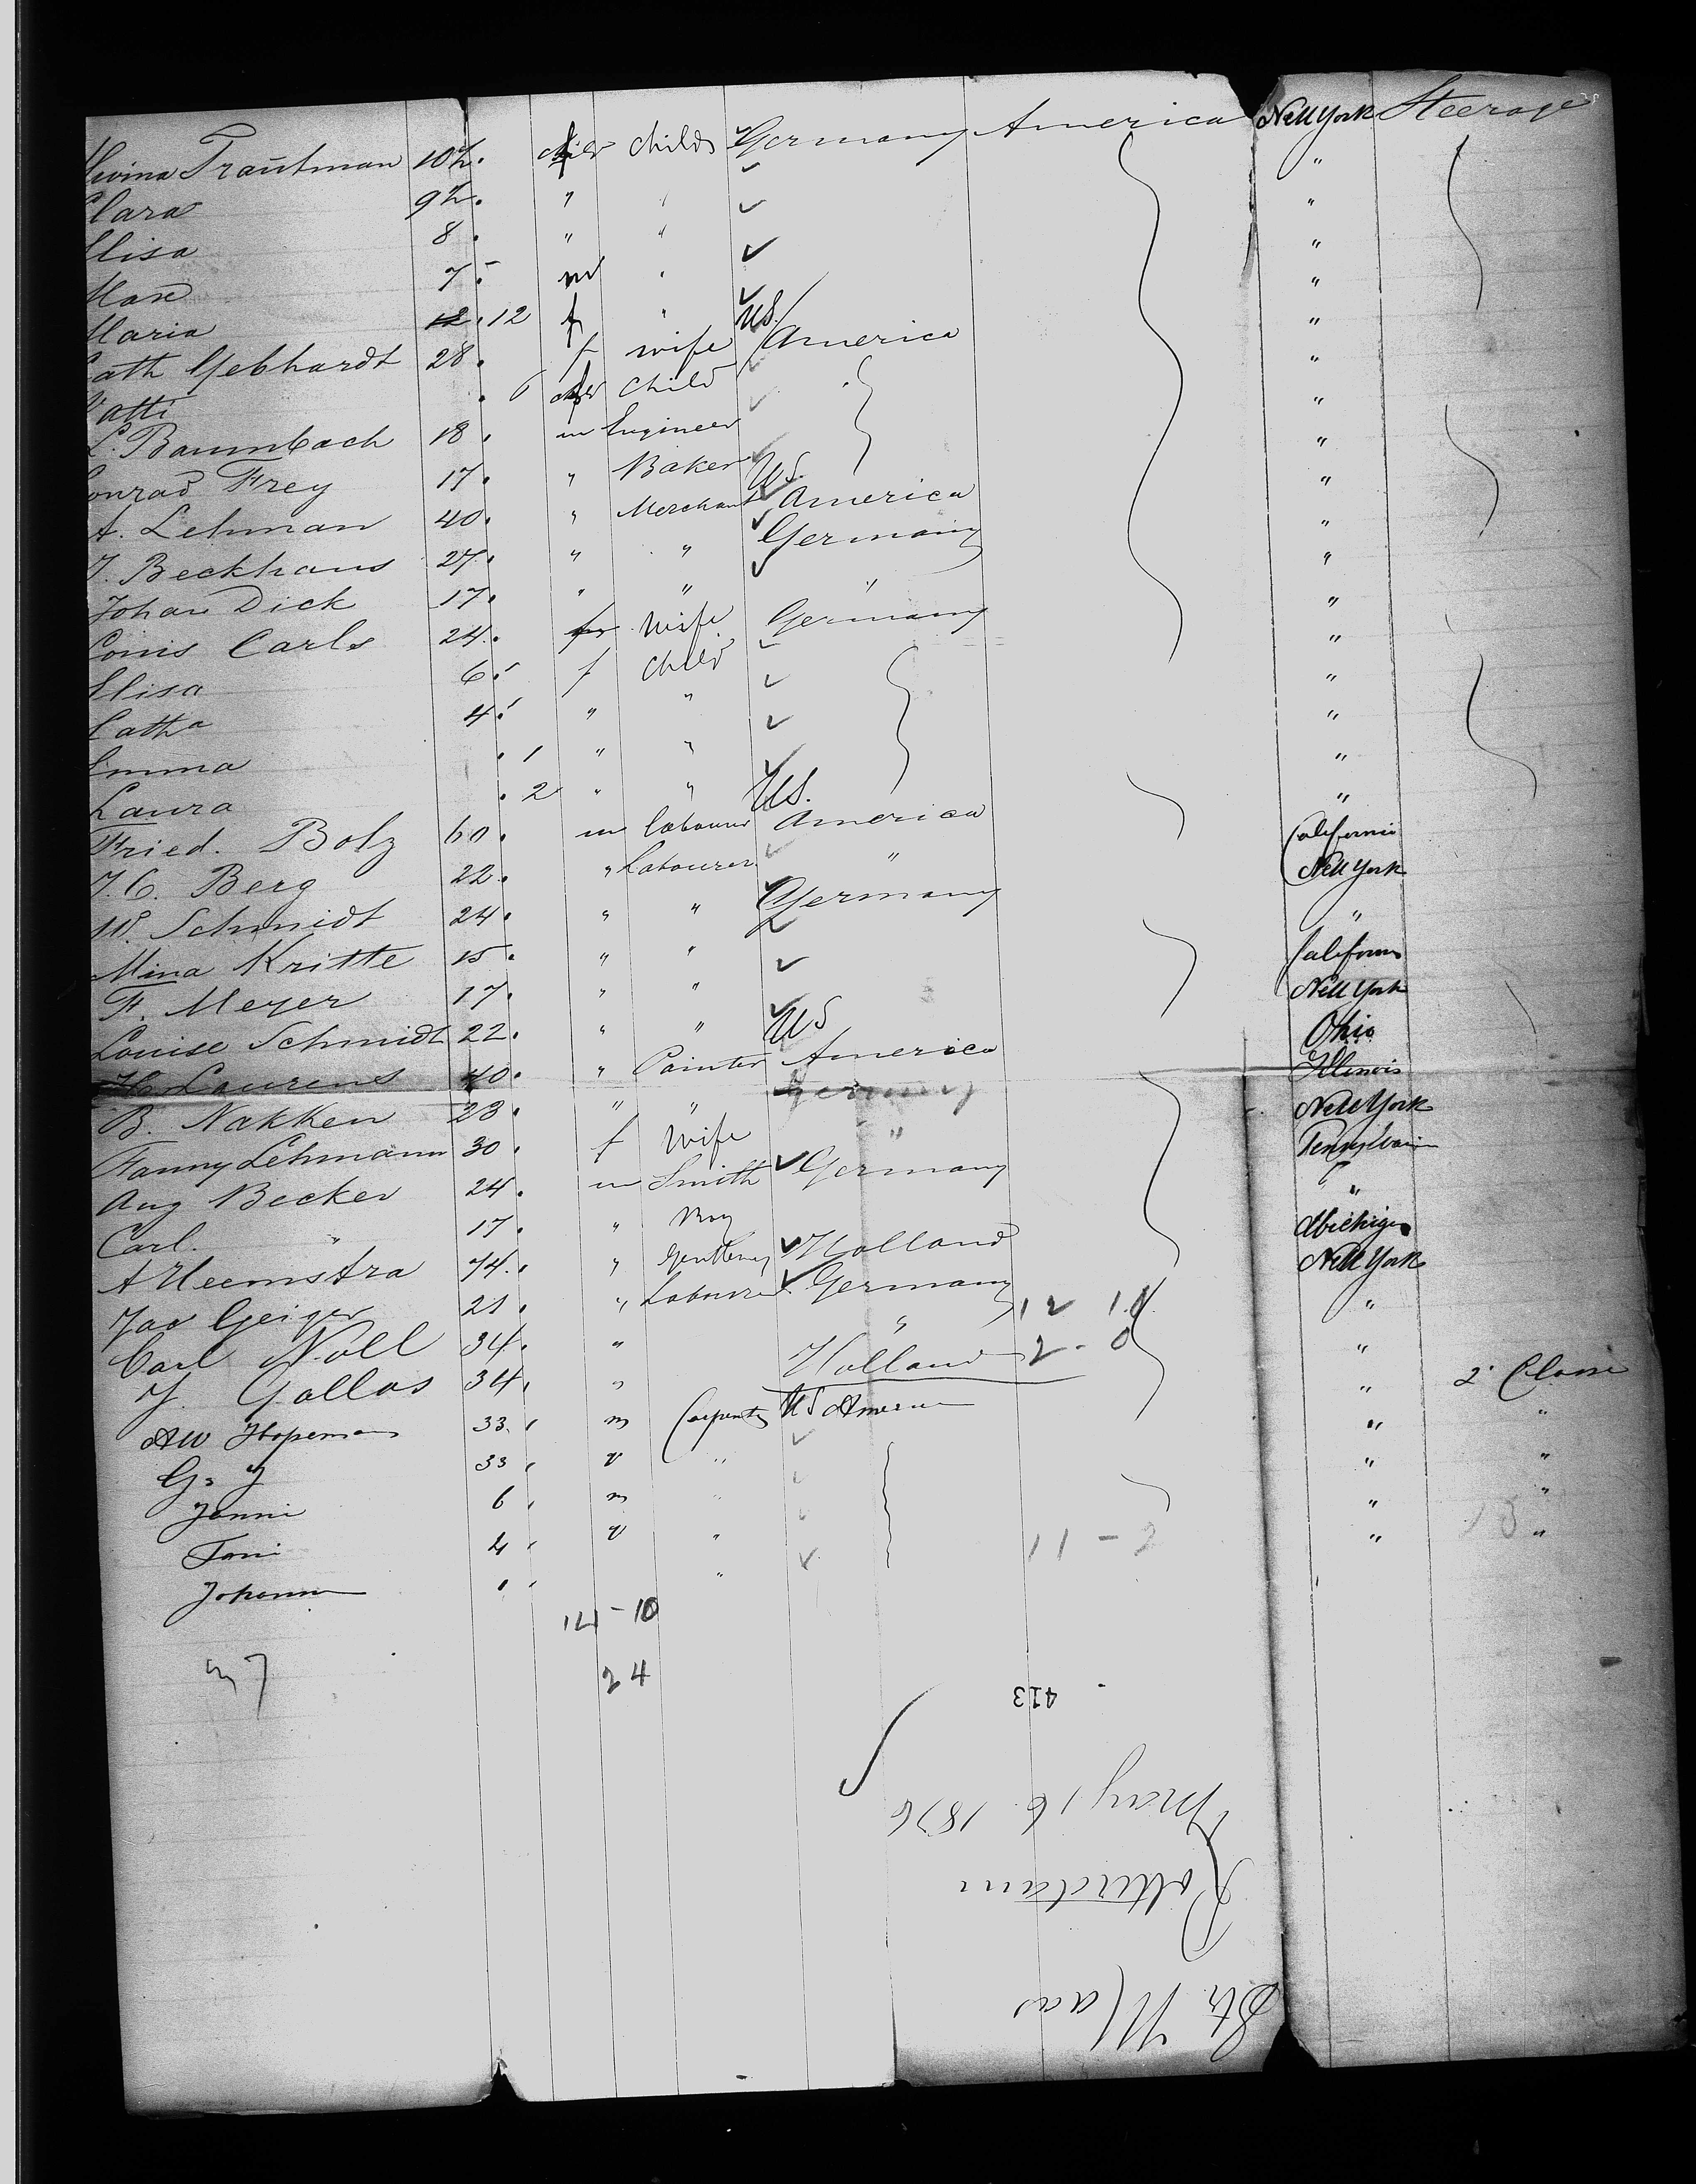 Trautman 10½ f childs Germany America New York Steerage
Clara 9½ " " "
Elisa 8 " " "
Max 7 m " "
Maria 12 f " "
Cath Gebhardt 28 f wife U.S. America "
Catti 6 f child "
L. Baumbach 18 m Engineer "
Conrad Frey 17 " Baker "
A. Lehman 40 " Merchant U.S. America "
J. Beckhaus 27 " " Germany "
Johan Dick 17 " " " "
Louis Carls 24 f Wife Germany "
Elisa 6 f child "
Catha 4 " " "
Emma 1 " " "
Laura 2 " " "
Fried. Bolz 60 m labourer U.S. America California
J. C. Berg 22 " Labourer " New York
W. Schmidt 24 " " Germany "
Mina Kritte 15 " " California
F. Meyer 17 " " New York
Louise Schmidt 22 " " Ohio
Laurens 40 " Painter US America Illinois
B. Nakken 23 " " Germany New York
Fanny Lehmann 30 f Wife " Pennsylvania
Aug Becker 24 m Smith Germany "
Carl " 17 " Boy Michigan
A Heemstra 74 " Gentleman Holland New York
Jac Geiger 21 " Labourer Germany "
Carl Noll 34 " " "
J. Gallas 34 " Holland " 2 Class
AW Hopeman 33 m Carpenter US America " "
G. J 33 " " "
Jenni 6 m " " "
Toni 4 " " "
Johanna "
12
2 - 0
11 - 2
14 - 10
37
24
413
May 16 1876
Rotterdam
Str. Maas